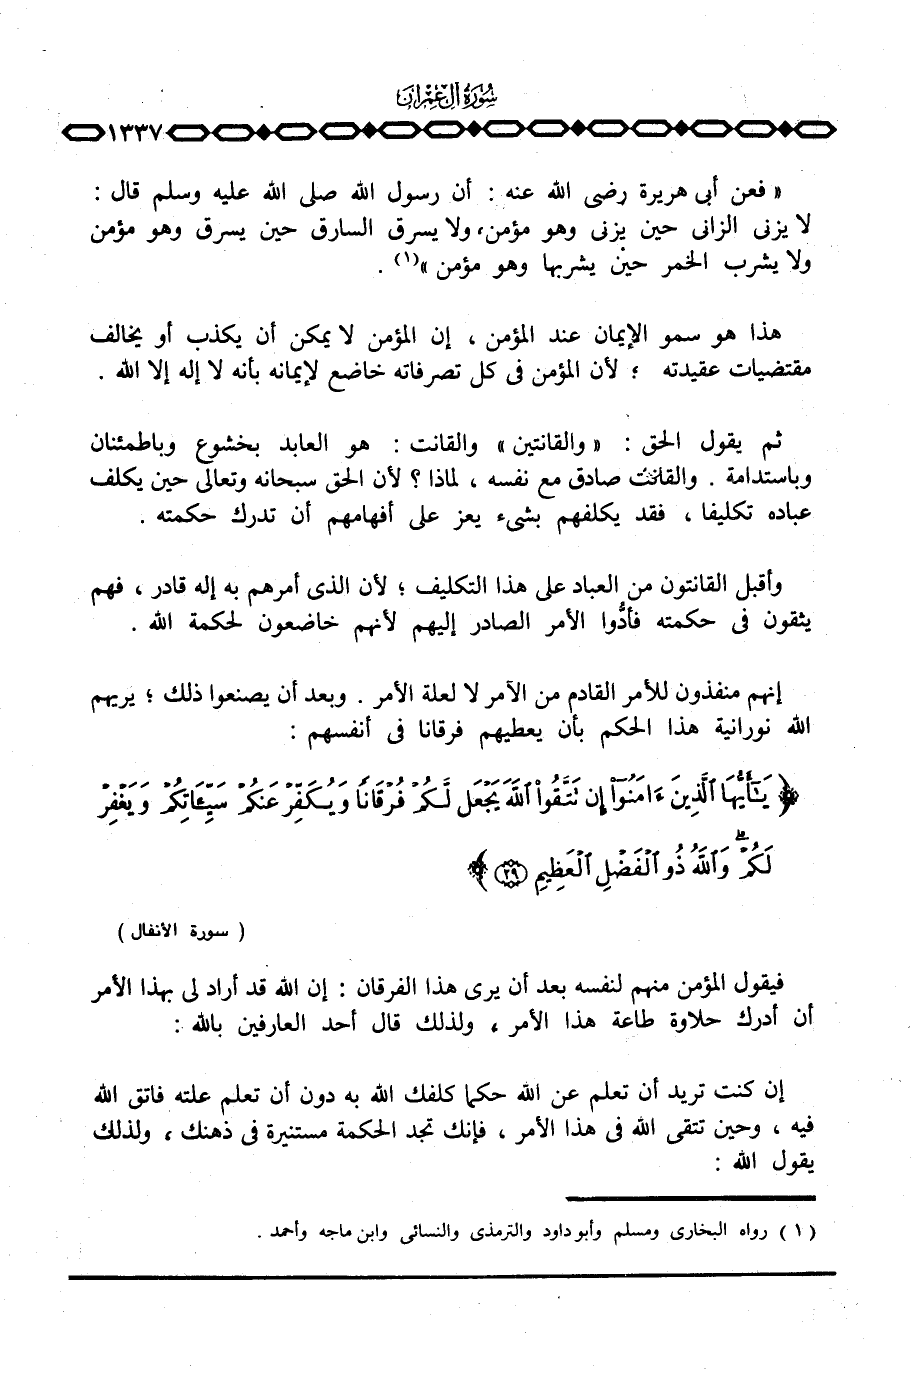 سُورَةُ آلِ عِمْرَانَ
١٣٣٧
« فعن أبى هريرة رضى الله عنه : أن رسول الله صلى الله عليه وسلم قال :
لا يزنى الزانى حين يزنى وهو مؤمن، ولا يسرق السارق حين يسرق وهو مؤمن
ولا يشرب الخمر حين يشربها وهو مؤمن »(١) .
هذا هو سمو الإيمان عند المؤمن ، إن المؤمن لا يمكن أن يكذب أو يخالف
مقتضيات عقيدته ؛ لأن المؤمن فى كل تصرفاته خاضع لإيمانه بأنه لا إله إلا الله .
ثم يقول الحق : « والقانتين » والقانت : هو العابد بخشوع وباطمئنان
وباستدامة . والقانت صادق مع نفسه ، لماذا ؟ لأن الحق سبحانه وتعالى حين يكلف
عباده تكليفا ، فقد يكلفهم بشىء يعز على أفهامهم أن تدرك حكمته .
وأقبل القانتون من العباد على هذا التكليف ؛ لأن الذى أمرهم به إله قادر ، فهم
يثقون فى حكمته فأدُّوا الأمر الصادر إليهم لأنهم خاضعون لحكمة الله .
إنهم منفذون للأمر القادم من الآمر لا لعلة الأمر . وبعد أن يصنعوا ذلك ؛ يريهم
الله نورانية هذا الحكم بأن يعطيهم فرقانا فى أنفسهم :
﴿ يَـٰٓأَيُّهَا ٱلَّذِينَ ءَامَنُوٓا۟ إِن تَتَّقُوا۟ ٱللَّهَ يَجْعَل لَّكُمْ فُرْقَانًا وَيُكَفِّرْ عَنكُمْ سَيِّـَٔاتِكُمْ وَيَغْفِرْ
لَكُمْ ۗ وَٱللَّهُ ذُو ٱلْفَضْلِ ٱلْعَظِيمِ ٢٩ ﴾
( سورة الأنفال )
فيقول المؤمن منهم لنفسه بعد أن يرى هذا الفرقان : إن الله قد أراد لى بهذا الأمر
أن أدرك حلاوة طاعة هذا الأمر ، ولذلك قال أحد العارفين بالله :
إن كنت تريد أن تعلم عن الله حكما كلفك الله به دون أن تعلم علته فاتق الله
فيه ، وحين تتقى الله فى هذا الأمر ، فإنك تجد الحكمة مستنيرة فى ذهنك ، ولذلك
يقول الله :
( ١ ) رواه البخارى ومسلم وأبو داود والترمذى والنسائى وابن ماجه وأحمد .